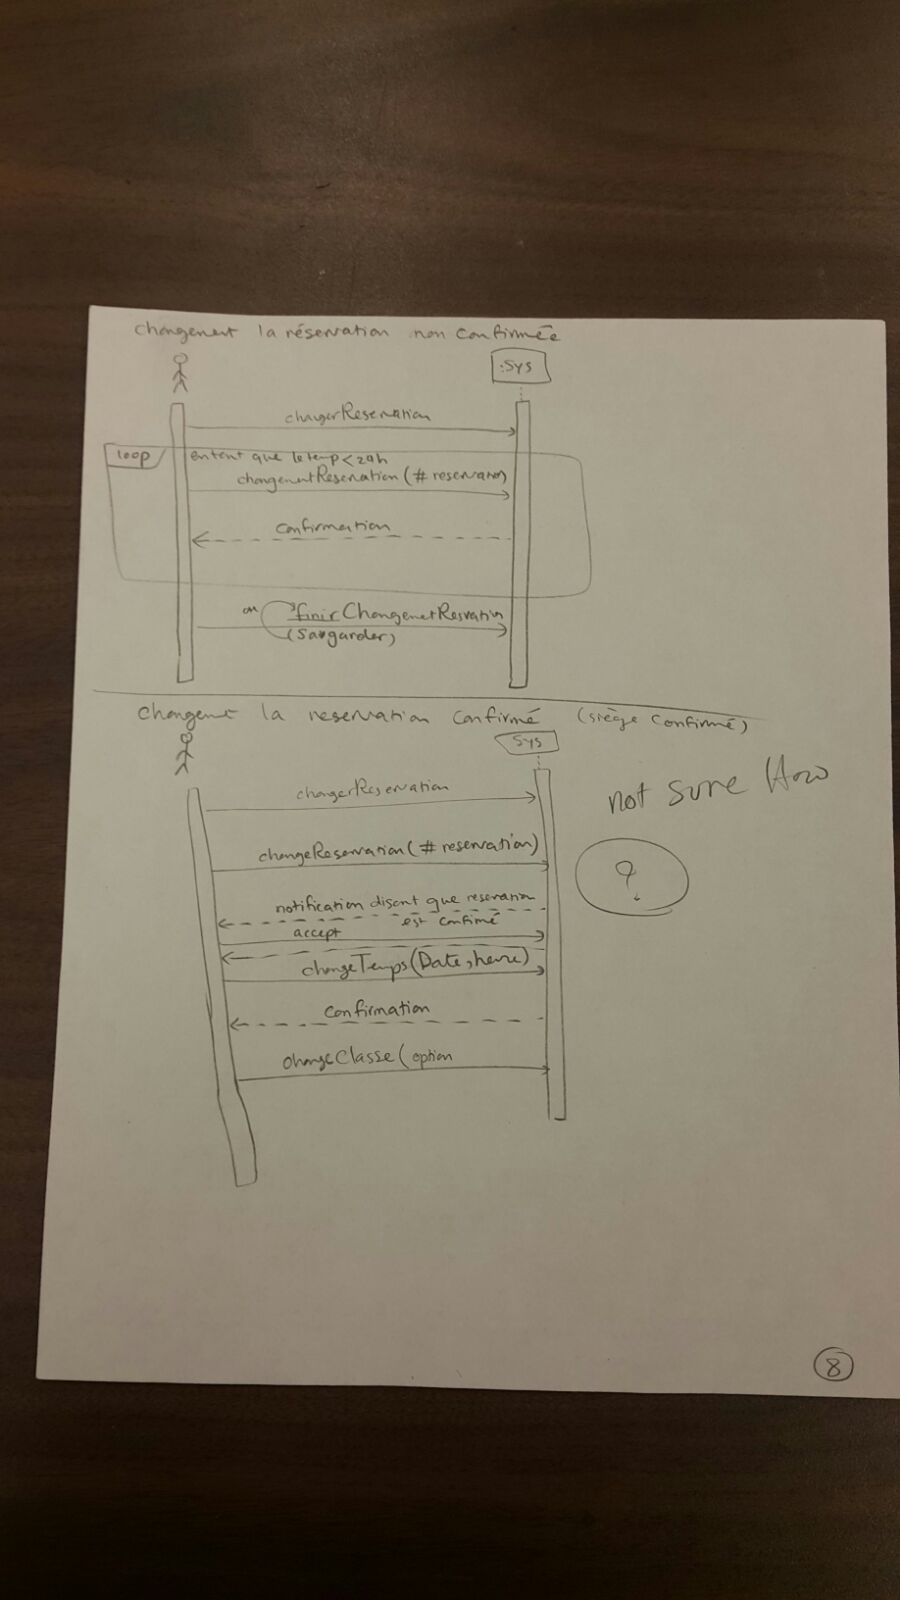 changement la réservation non confirmée
:Sys
changerReservation
loop
entent que le temp < 24h
changementReservation (# reservation)
confirmation
on finirChangemetResrvatin
(Saugarder)
changemet la reservation confirmé (siège confirmé)
Sys
changerReservation
not sure How
changeReservation (# reservation)
?
notification disant que reservation
est confirmé
accept
changeTemps (Date, heure)
confirmation
changeClasse (option
8